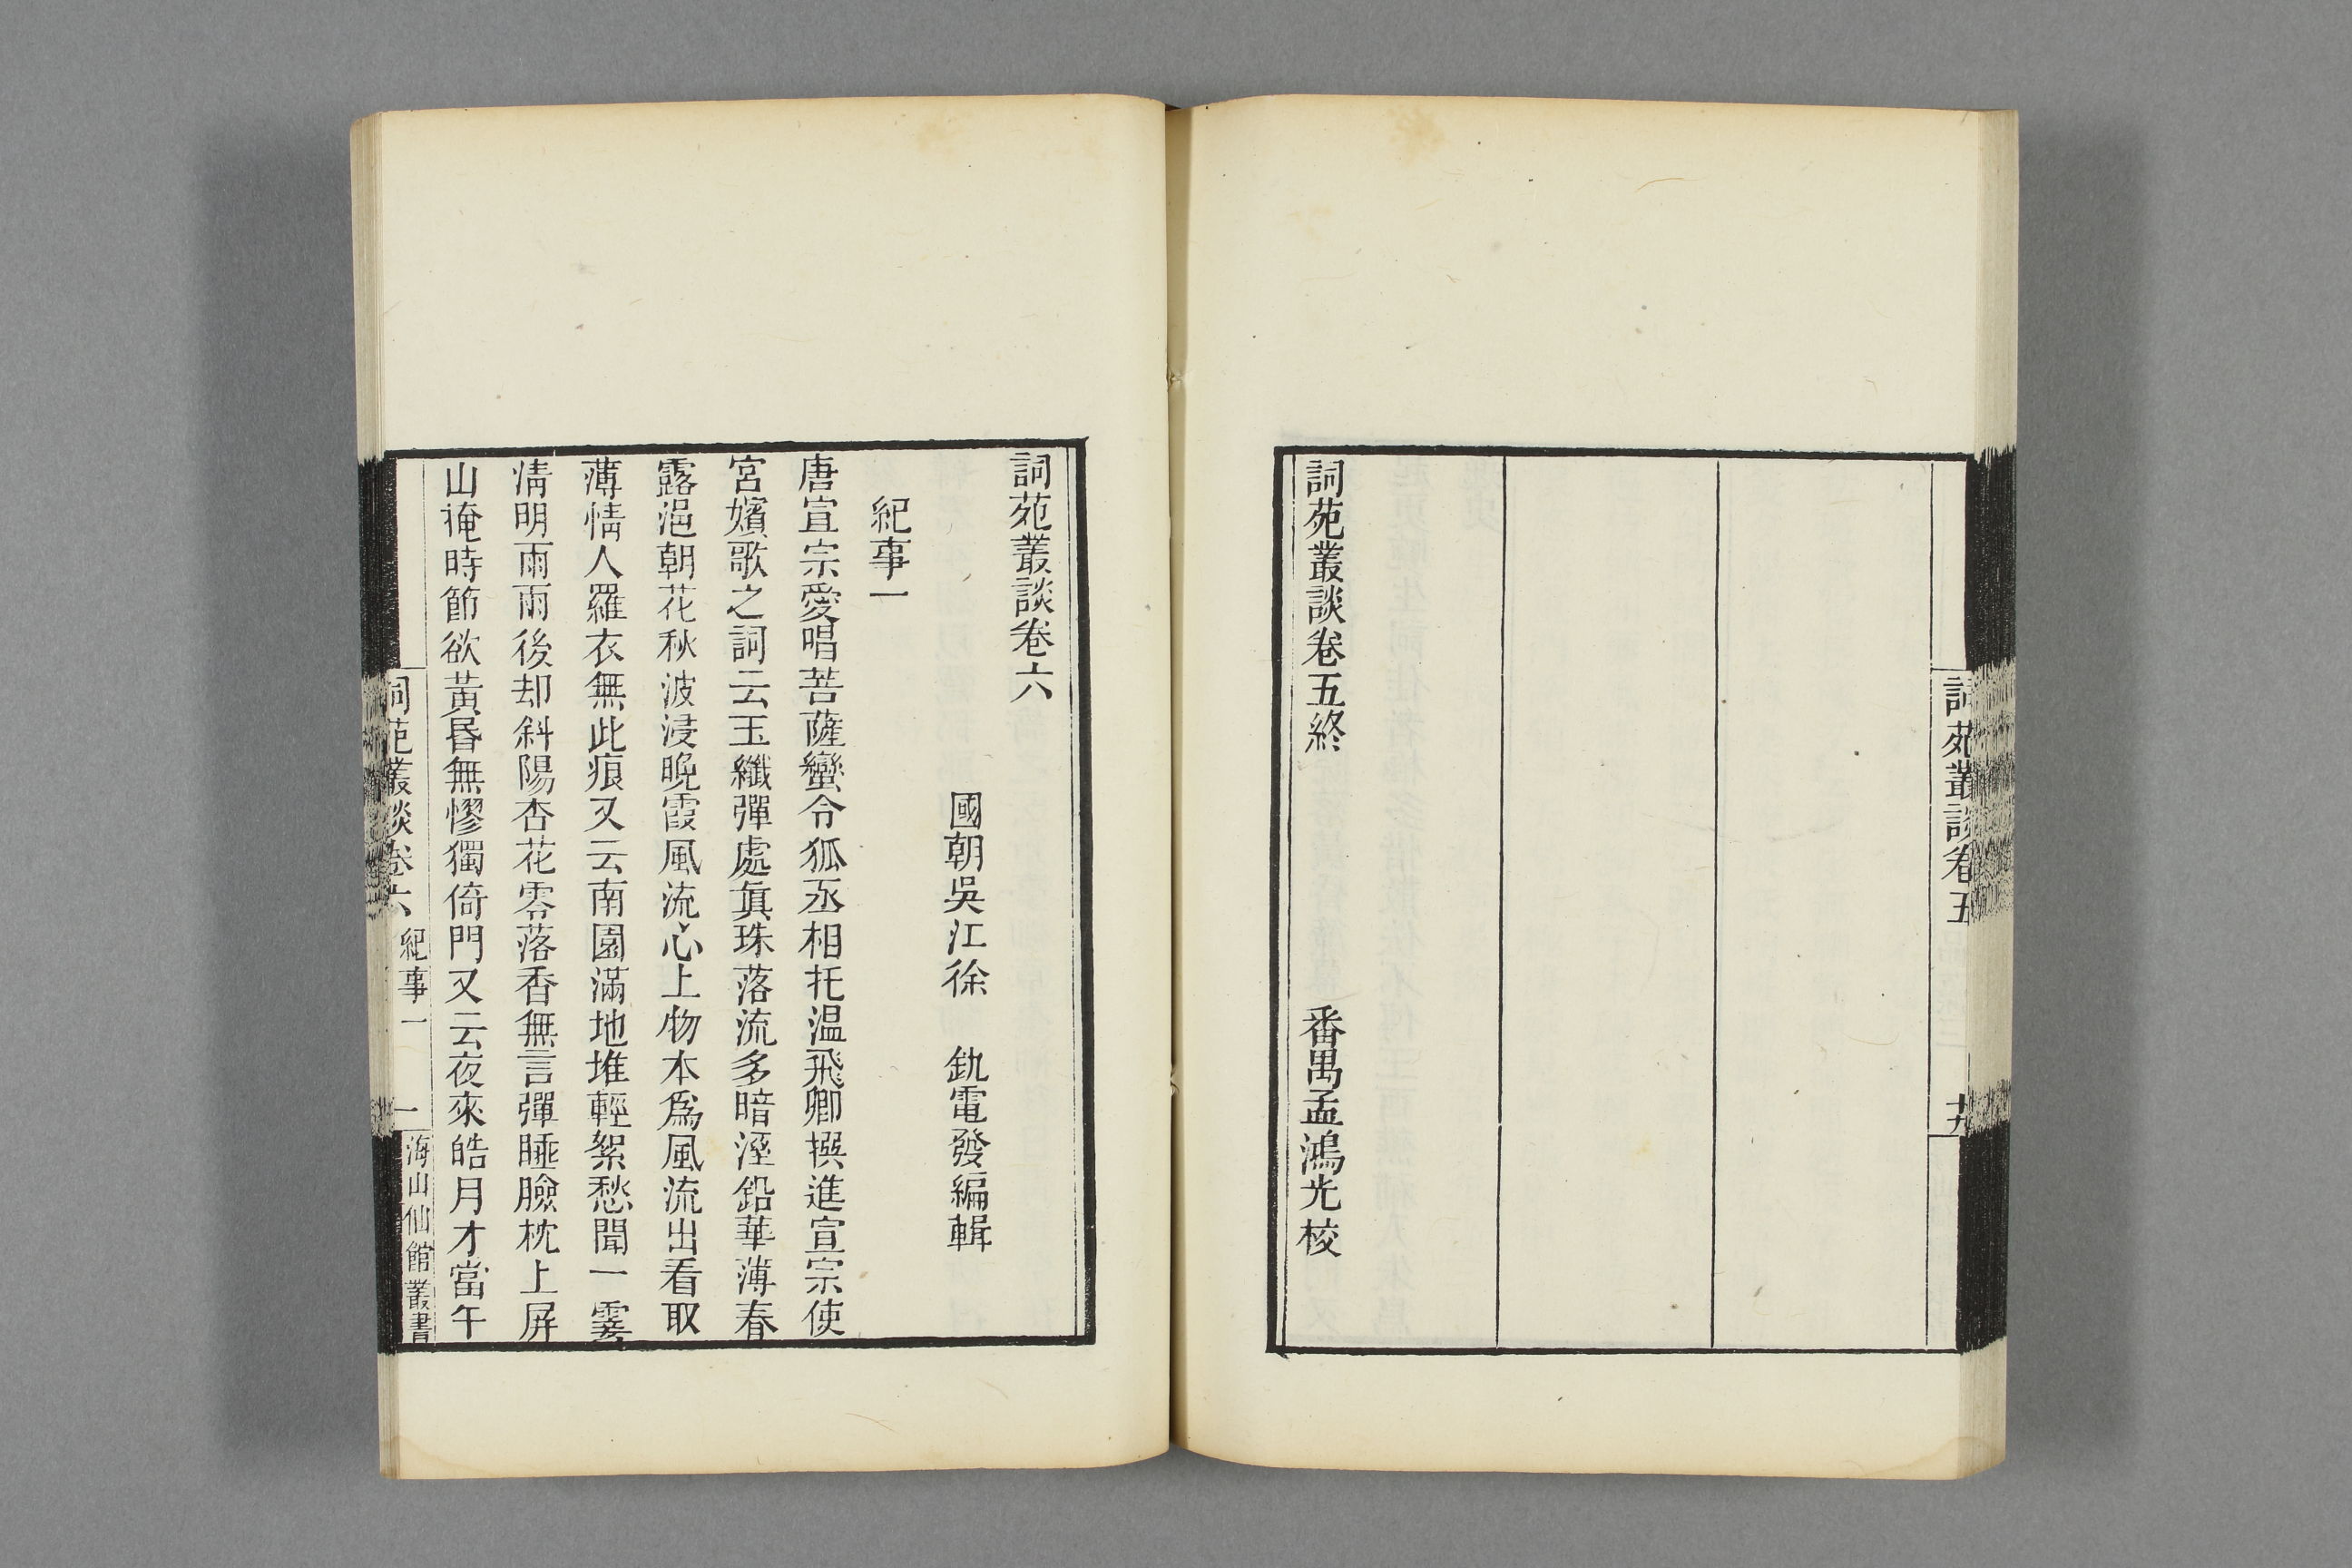 詞苑叢談卷五
十九
詞苑叢談卷五終
番禺孟鴻光校
詞苑叢談卷六
國朝吳江徐 釚電發編輯
紀事一
唐宣宗愛唱菩薩蠻令狐丞相托温飛卿撰進宣宗使
宮嬪歌之詞云玉纖彈處眞珠落流多暗溼鉛華薄春
露浥朝花秋波浸晚霞風流心上物本爲風流出看取
薄情人羅衣無此痕又云南園滿地堆輕絮愁聞一霎
淸明雨雨後却斜陽杏花零落香無言彈睡臉枕上屏
山掩時節欲黃昏無憀獨倚門又云夜來皓月才當午
詞苑叢談卷六 紀事一
一
海山仙館叢書